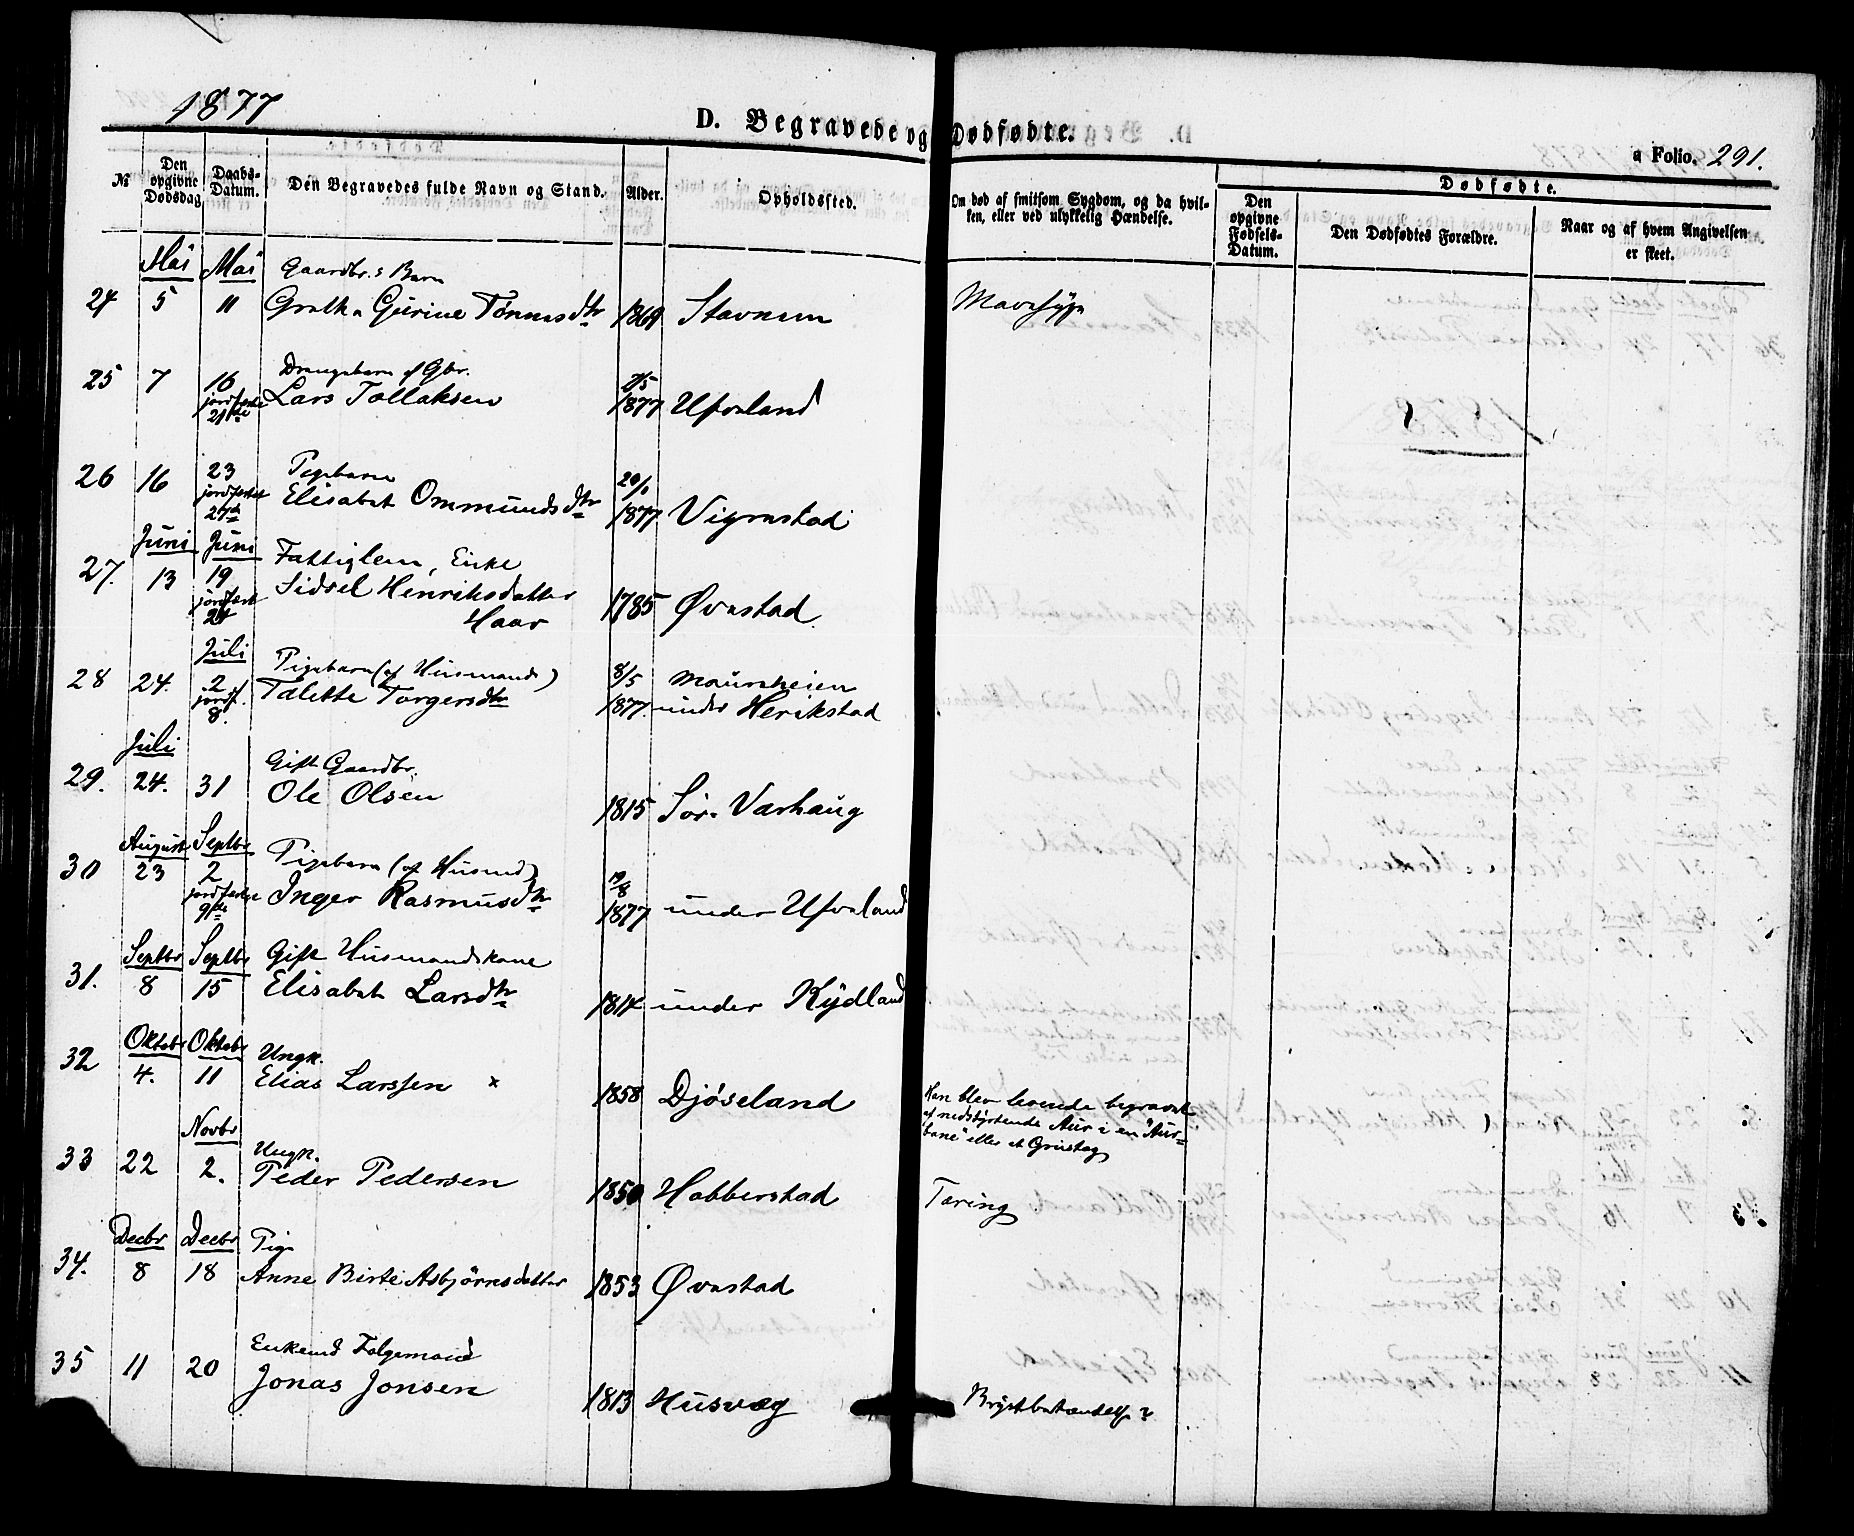 1877
D. Begravede og Dødfødte.
a Folio. 291.
№ Den opgivne Dødsdag. Daabs-Datum. Den Begravedes fulde Navn og Stand. Alder. Opholdssted. Om død af smitsom Sygdom, og da hvilken, eller ved ulykkelig Hændelse. Den opgivne Fødsels-Datum. Den Dødfødtes Forældre. Naar og af hvem Angivelsen er skeet.
Dødfødte.
Mai Mai Gaardbr.s Barn
24 5 11 Gurine Tønnesdtr 1869 Stavnem Mavesyge
Drengebarn af Gbr.
25 7 16 jordfæstet 21de Lars Tollaksen 7/5 1877 Ufsaland
Pigebarn
26 16 23 jordfæstet 27de Elisabet Ommundsdtr 1877 Vigrestad
Juni Juni Fattiglem, Enke
27. 13 19 jordfæst 24 Sidsel Henriksdatter
Haar 1785 Øvrestad.
Juli Pigebarn (af Husmand)
28 24. 2 jordf. 8. Talette Torgersdtr 8/5 1877. under Herikstad
Juli Gift Gaardbr.
29. 24. 31 Ole Olsen 1815 Sør-Varhaug
August Septbr Pigebarn (af Husmd)
30 23 2 jordfæstet 9de Inger Rasmusdtr 1877 under Ufsaland
Septbr Septbr Gift Husmandskone
31. 8 15 Elisabet Larsdtr 1814 under Kydland
Oktobr Oktobr Ungk.
32 4. 11 Elias Larssen x 1858 Djøseland
Han blev levende begravet
af nedstyrtende Aur i en "Aur-
bane" eller et Grustag
Novbr Ungk.
33 22 2. Peder Pedersen 1850 Habberstad Tæring
Decbr Decbr Pige
34. 8 18 Anne Birte Asbjørnsdatter 1853 Øvrestad
Enkemd Folgemand
35 11 20 Jonas Jonsen 1813 Husvæg Brystbetændelse?
1878